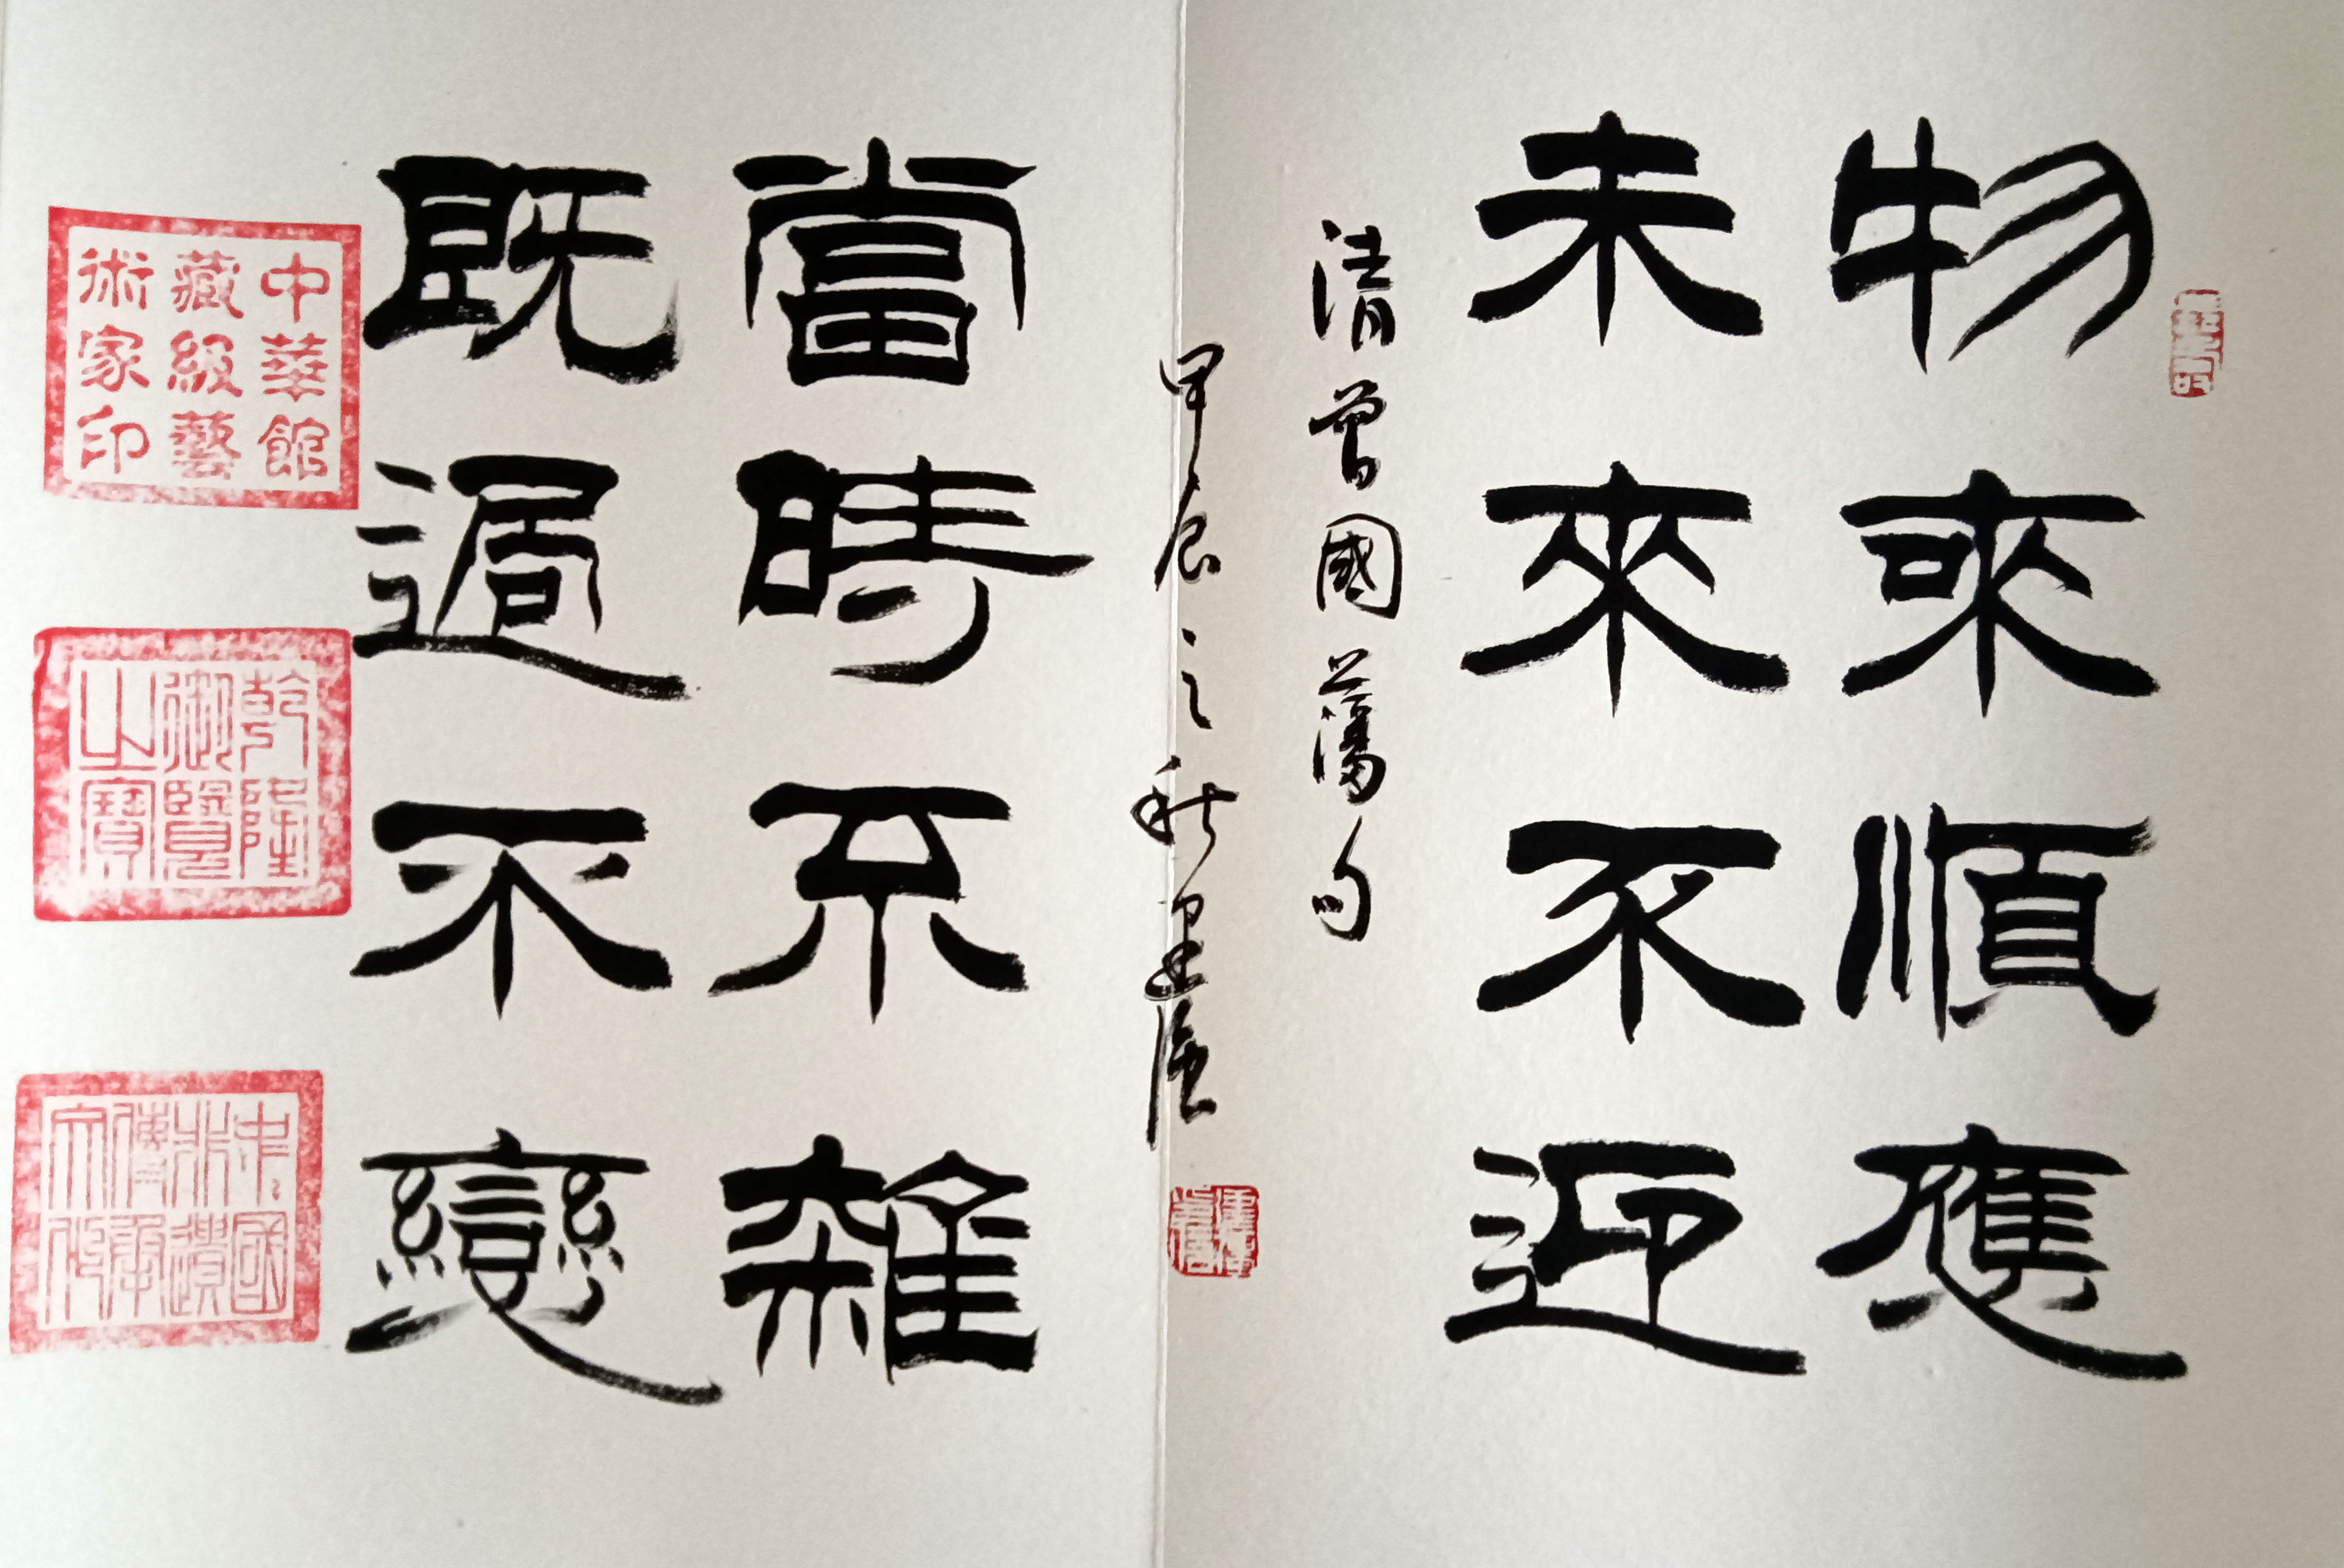 物來順應
未來不迎
清曾國藩句
甲辰之秋
當時不雜
既過不戀
中華館
藏級藝
術家印
乾隆
御覽
之寶
中國
非遺
傳承